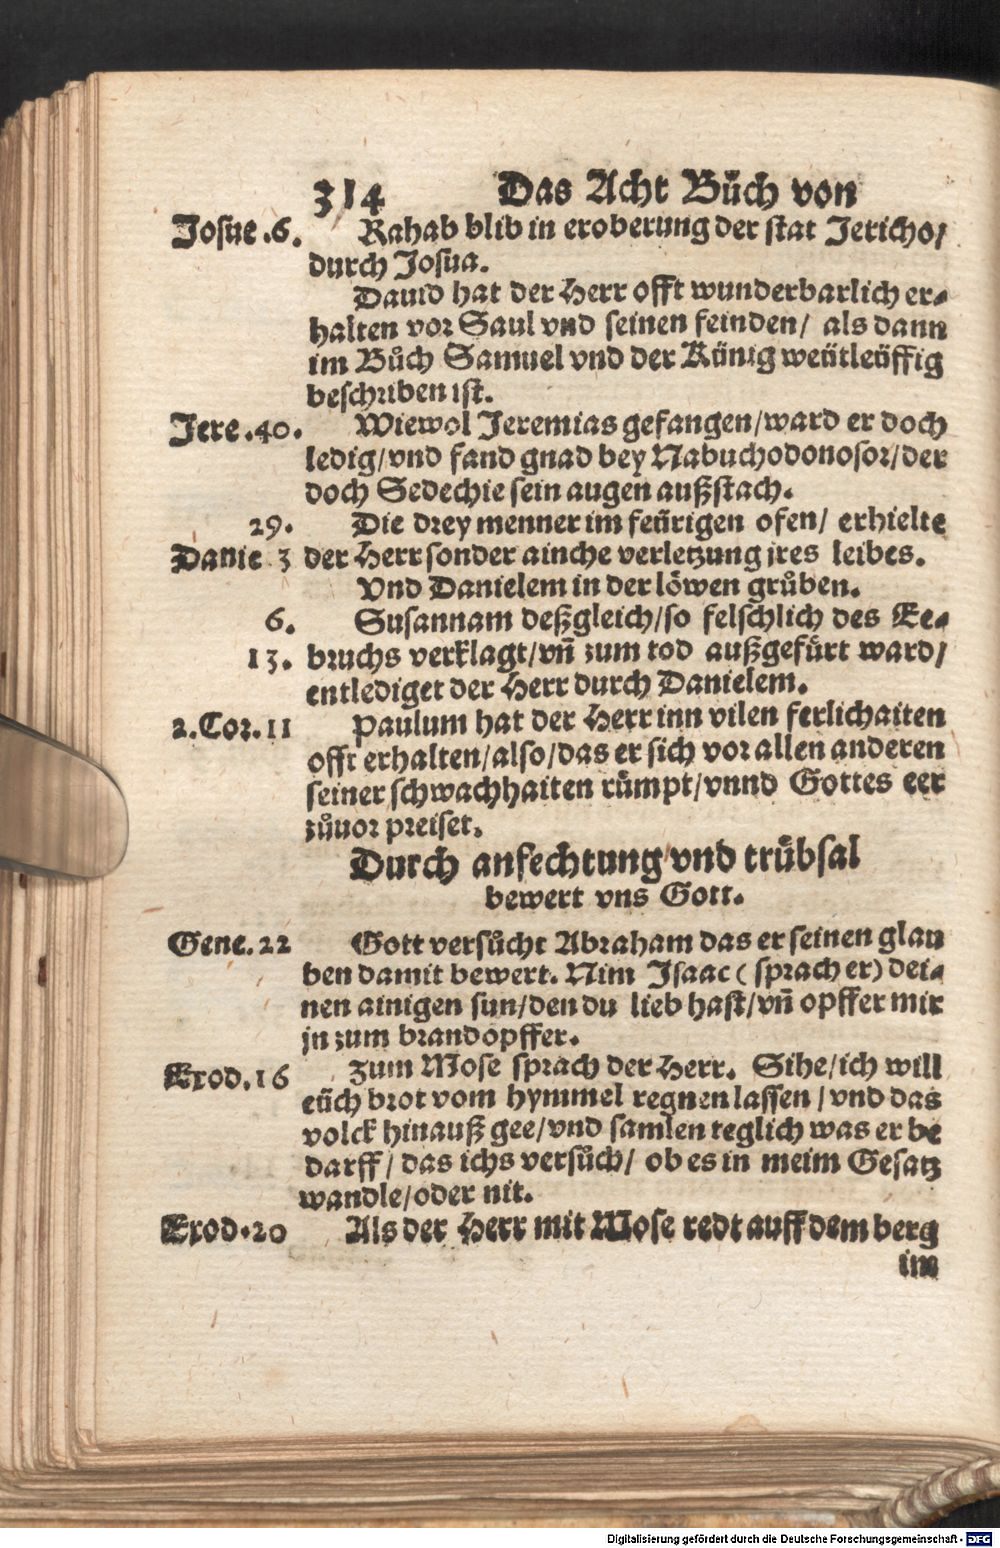 314 Das Acht Bůch von
Josue .6. Rahab blib in eroberung der stat Jericho/
durch Josua.
Dauid hat der Herr offt wunderbarlich er-
halten vor Saul vnd seinen feinden/ als dann
im Bůch Samuel vnd der Künig weütleüffig
beschriben ist.
Jere .40. Wiewol Jeremias gefangen/ward er doch
ledig/vnd fand gnad bey Nabuchodonosor/der
doch Sedechie sein augen außstach.
29. Die drey menner im feürigen ofen/ erhielte
Danie 3 der Herr sonder ainche verletzung jres leibes.
Vnd Danielem in der löwen grůben.
6. Susannam deßgleich/so felschlich des Ee-
13. bruchs verklagt/vñ zum tod außgefürt ward/
entlediget der Herr durch Danielem.
2.Cor.11 Paulum hat der Herr inn vilen ferlichaiten
offt erhalten/also/das er sich vor allen anderen
seiner schwachhaiten rümpt/vnnd Gottes eer
zůuor preiset.
Durch anfechtung vnd trübsal
bewert vns Gott.
Gene.22 Gott versůcht Abraham das er seinen glau
ben damit bewert. Nim Isaac ( sprach er) dei-
nen ainigen sun/den du lieb hast/vñ opffer mir
jn zum brandopffer.
Exod.16 Zum Mose sprach der Herr. Sihe/ich will
eüch brot vom hymmel regnen lassen /vnd das
volck hinauß gee/vnd samlen teglich was er be
darff/ das ichs versůch/ ob es in meim Gesatz
wandle/oder nit.
Exod.20 Als der Herr mit Mose redt auff dem berg
im
Digitalisierung gefördert durch die Deutsche Forschungsgemeinschaft - DFG